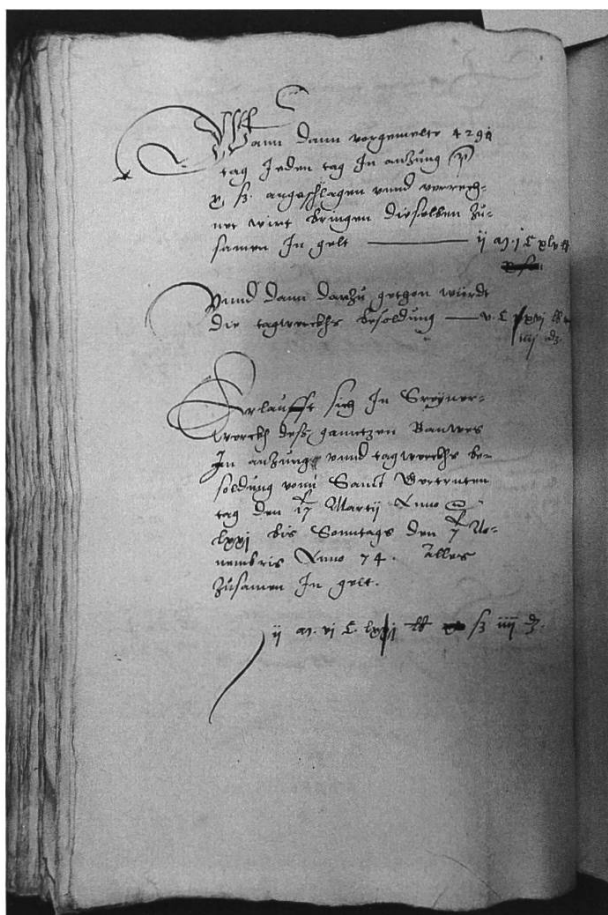 Wann dann vorgemelte 4291
tag Jeden tag In anzung p
x ß. angeschlagen vnnd verrech-
net wirt bringen dieselben zu-
samen In gelt — ij m. j C xlv lb
Vnnd dann darzu gethon würdt
die tagwerckhs besoldung — v. C xxvj lb
iiij d.
Erlaufft sich In Schreyner-
werckh deß ganntzen Bauwes
In anzung vnnd tagwerckhs be-
soldung vonn Sanct Gertruten
tag den 17 Martij Anno
lxxj bis Sonntags den 7 No-
uembris Anno 74. Alles
zusamen In gelt.
ij m. vj C. lxxj lb ß iiij d.